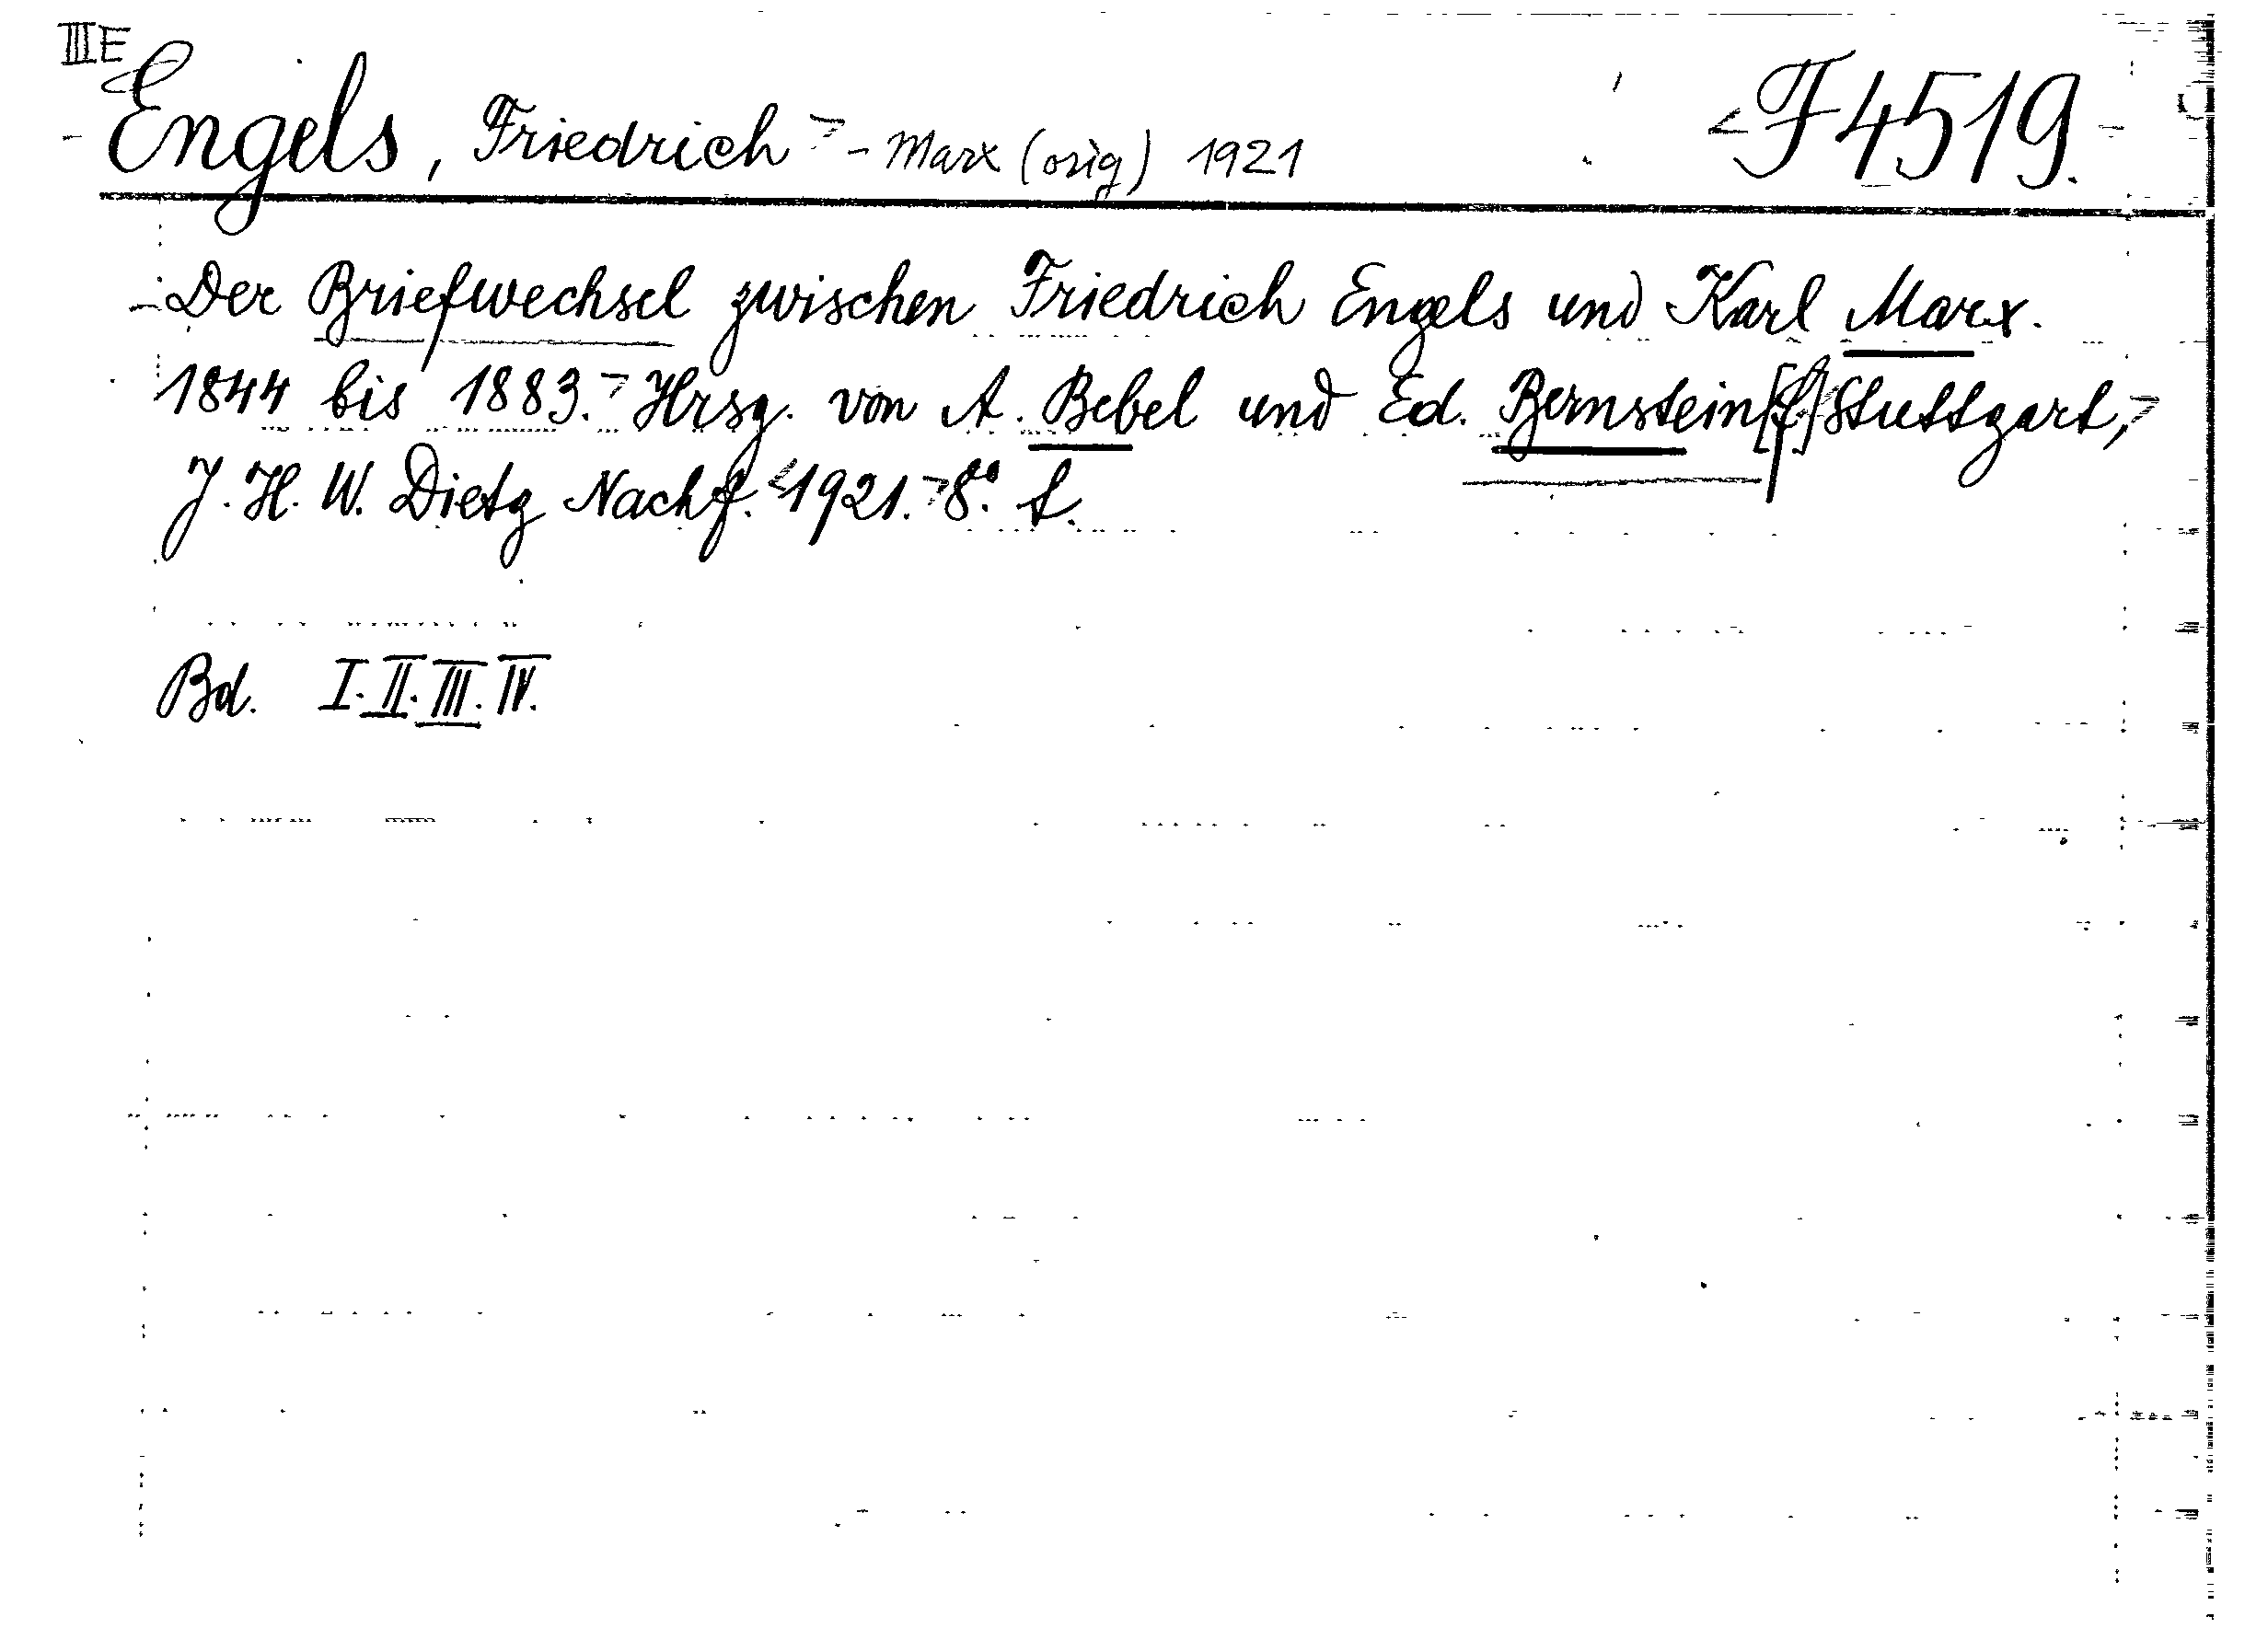 III E
Engels, Friedrich - Marx (orig) 1921 F 4519.
Der Briefwechsel zwischen Friedrich Engels und Karl Marx.
1844 bis 1883. Hrsg. von A. Bebel und Ed. Bernstein Stuttgart,
J. H. W. Dietz Nachf. 1921. 8°.
Bd. I. II. III. IV.